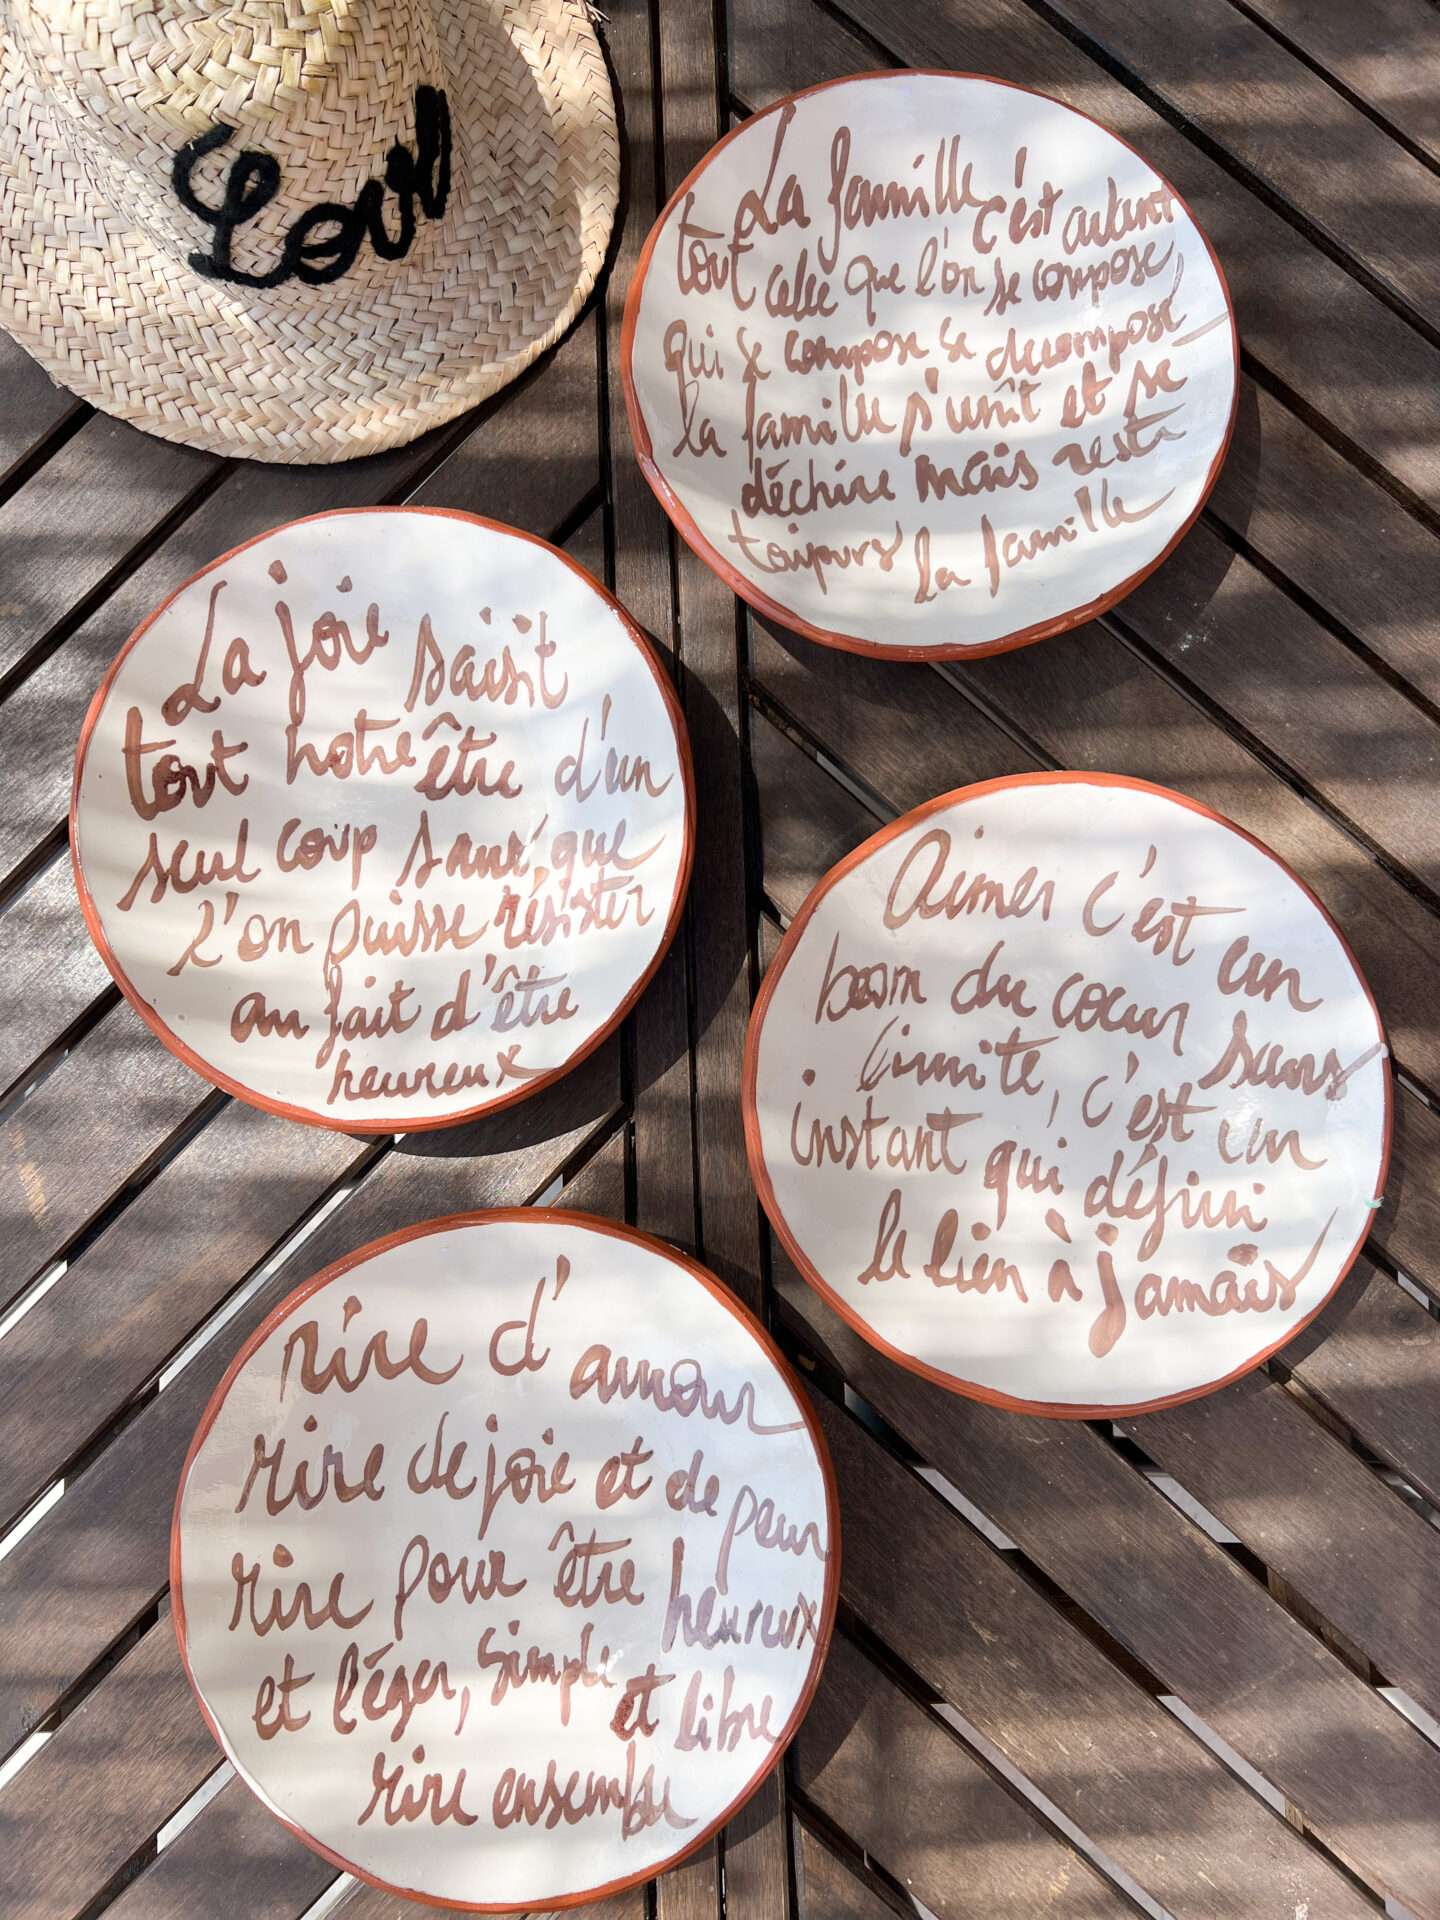 Love
La famille c'est autant
tout celle que l'on se compose,
qui se compose se decompose
la famille s'unit et se
déchire mais reste
toujours la famille
La joie saisit
tout notre être d'un
seul coup sans que
l'on puisse résister
au fait d'être
heureux
Aimer c'est un
besoin du coeur sans
limite, c'est un
instant qui défini
le lien à jamais
rire d'amour
rire de joie et de peur
rire pour être heureux
et léger, simple et libre
rire ensemble